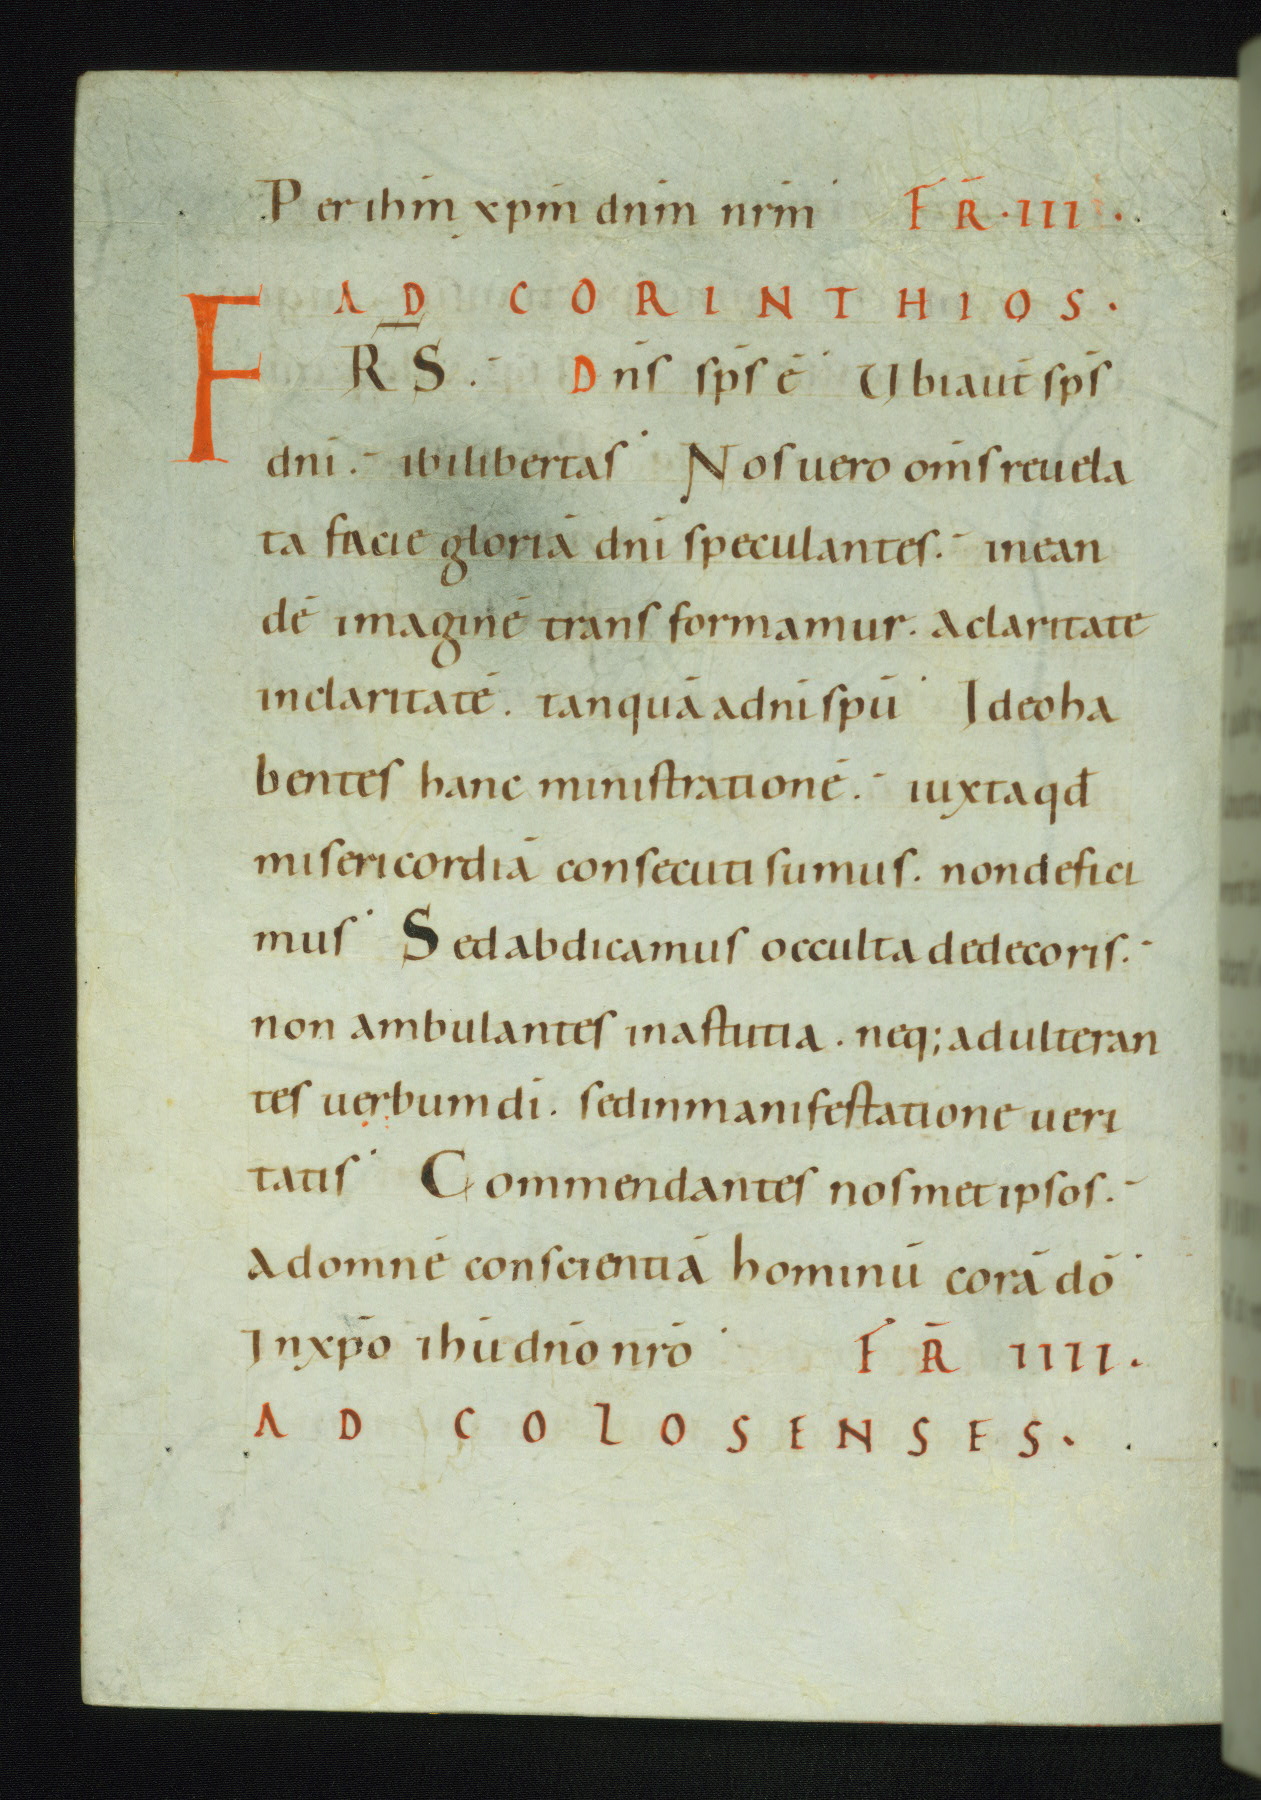 Per ihm̄ xp̄m dn̄m nr̄m FR̄ · III ·
AD CORINTHIOS ·
FR̄S . Dn̄s sp̄s ē Ubi aut̄ sp̄s
dn̄i . ibi libertas Nos uero om̄s reuela
ta facie gloriā dn̄i speculantes . in ean
dē imaginē transformamur . a claritate
in claritatē . tanquā a dn̄i spū Ideo ha
bentes hanc ministrationē . iuxta qd̄
misericordiā consecuti sumus . non defici
mus Sed abdicamus occulta dedecoris .
non ambulantes in astutia . neq; adulteran
tes uerbum dī . sed in manifestatione ueri
tatis Commendantes nosmet ipsos .
ad omnē conscientiā hominū corā dō
In xp̄o ihū dn̄o nr̄o FR̄ IIII .
AD COLOSENSES .